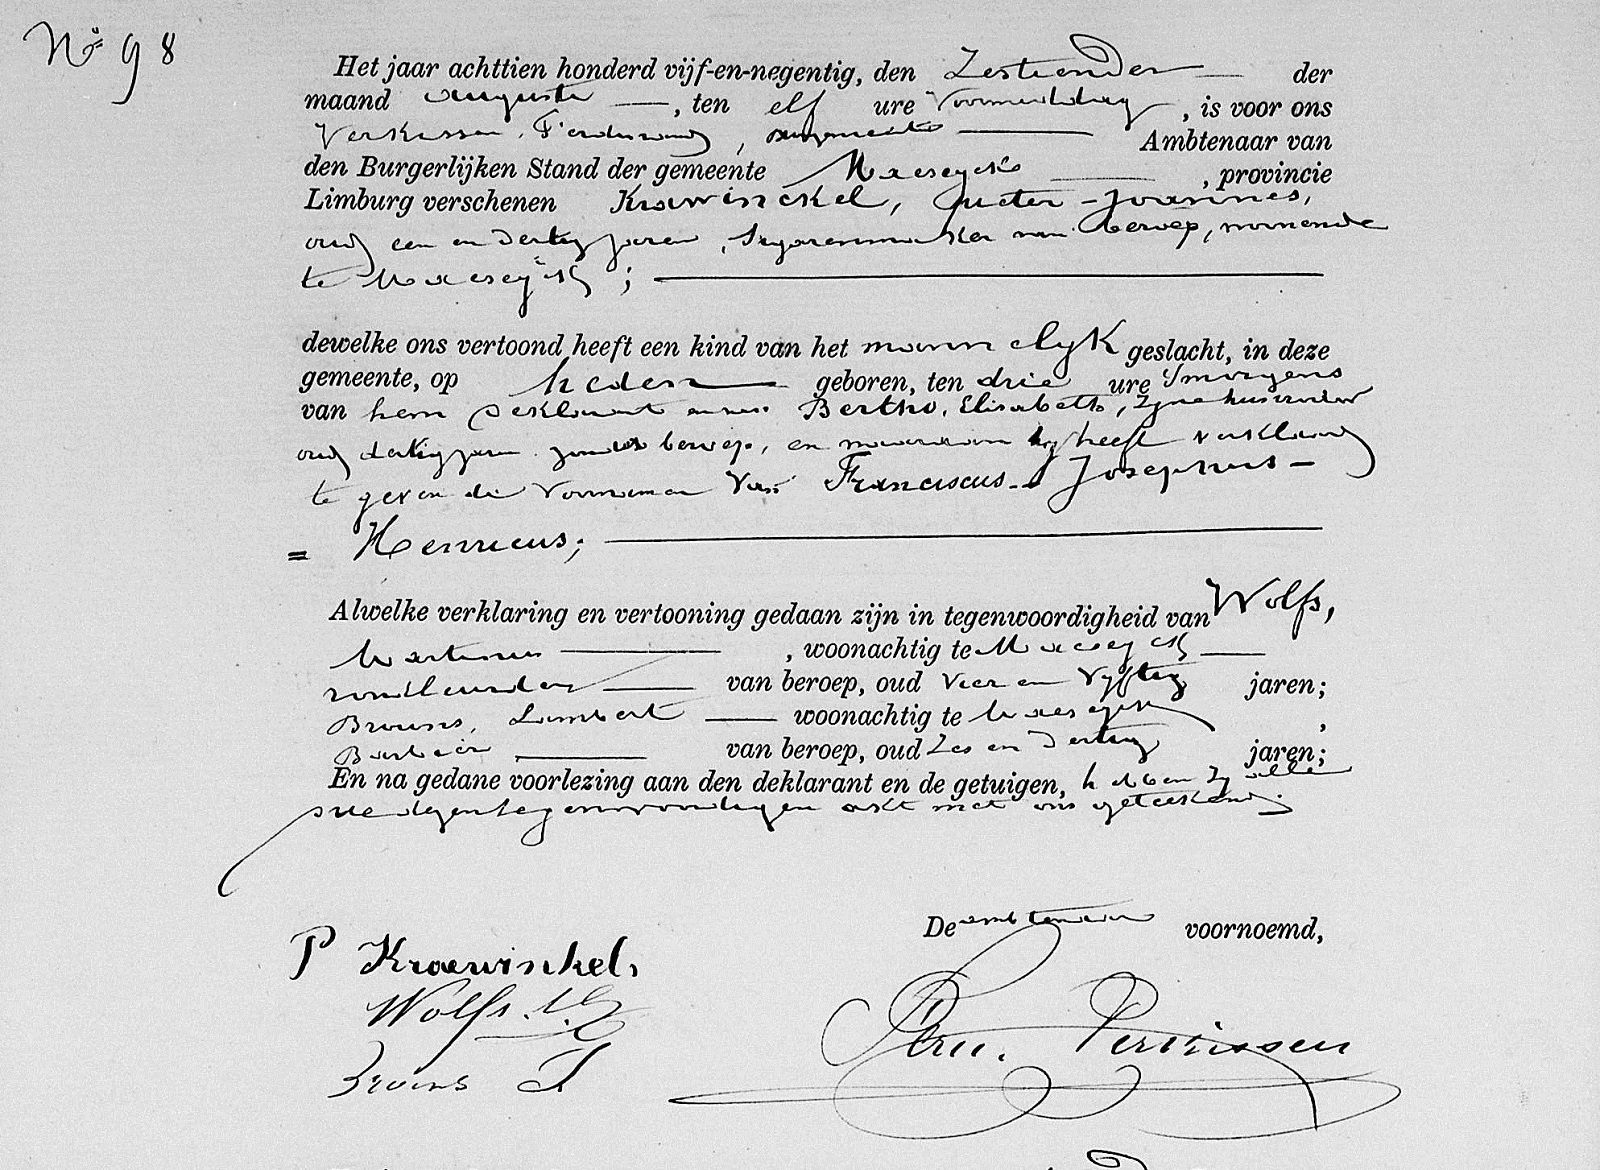 No 98
Het jaar achttien honderd vijf-en-negentig, den Zestienden der
maand Augusti, ten elf ure Voormiddag, is voor ons
Verkissen, Ferdinand, Ambtenaar van
den Burgerlijken Stand der gemeente Maeseyck, provincie
Limburg verschenen Krawinckel, Pieter-Joannes,
oud een en dertig jaren, Sigarenmaker van beroep, wonende
te Maeseyck;
dewelke ons vertoond heeft een kind van het mannelyk geslacht, in deze
gemeente, op heden geboren, ten drie ure 'smorgens
van hem deklarant en van Bertho, Elisabeth, Zyne huisvrouw
oud dertig jaren zonder beroep, en waaraan hy heeft verklaard
te geven de Voornamen Van Franciscus-Josephus-
= Henricus;
Alwelke verklaring en vertooning gedaan zijn in tegenwoordigheid van Wolfs,
Martinus, woonachtig te Maeseyck
van beroep, oud Vier en Vyftig jaren;
Brouns, Lambert woonachtig te Maeseyck,
Barbier van beroep, oud Zes en Dertig jaren;
En na gedane voorlezing aan den deklarant en de getuigen, hebben Zy alle
drie dezen tegenwoordigen akt met ons geteekend;
De ambtenaar voornoemd,
P Kraewinkel.
Wolfs. M
Brouns L
Ferd. Verkissen